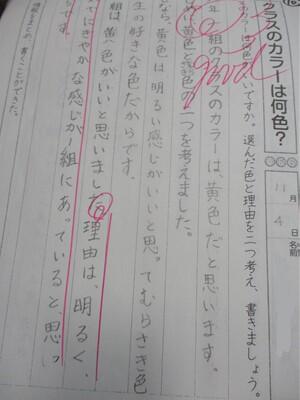 クラスのカラーは何色?
カラーは何色がいいですか。選んだ色と理由を二つ考え、書きましょう。
11月4日
名前
年一組のクラスのカラーは、黄色だと思います。
good
めに黄色と紫色の二つを考えました。
なら、黄色は明るい感じがいいと思。てむらさき色
生の好きな色だからです。
組は、黄色がいいと思いました。理由は、明るく、
にぎやかな感じが一組にあっていると、思い
です。
理由をまとめ、書くことができた。